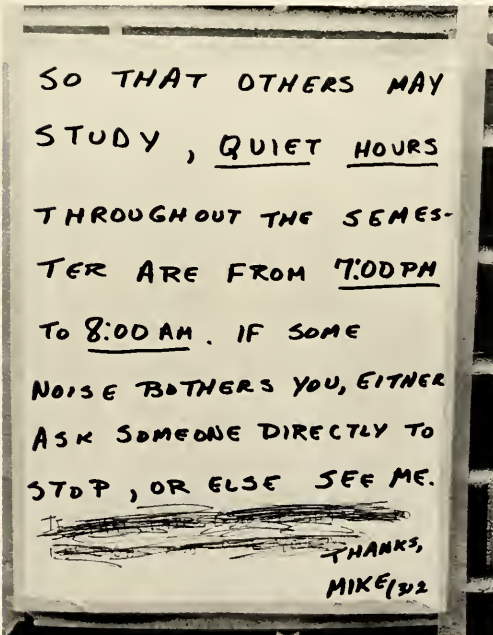 SO THAT OTHERS MAY
STUDY, QUIET HOURS
THROUGHOUT THE SEMES-
TER ARE FROM 7:00 PM
TO 8:00 AM. IF SOME
NOISE BOTHERS YOU, EITHER
ASK SOMEONE DIRECTLY TO
STOP, OR ELSE SEE ME.
THANKS,
MIKE/312